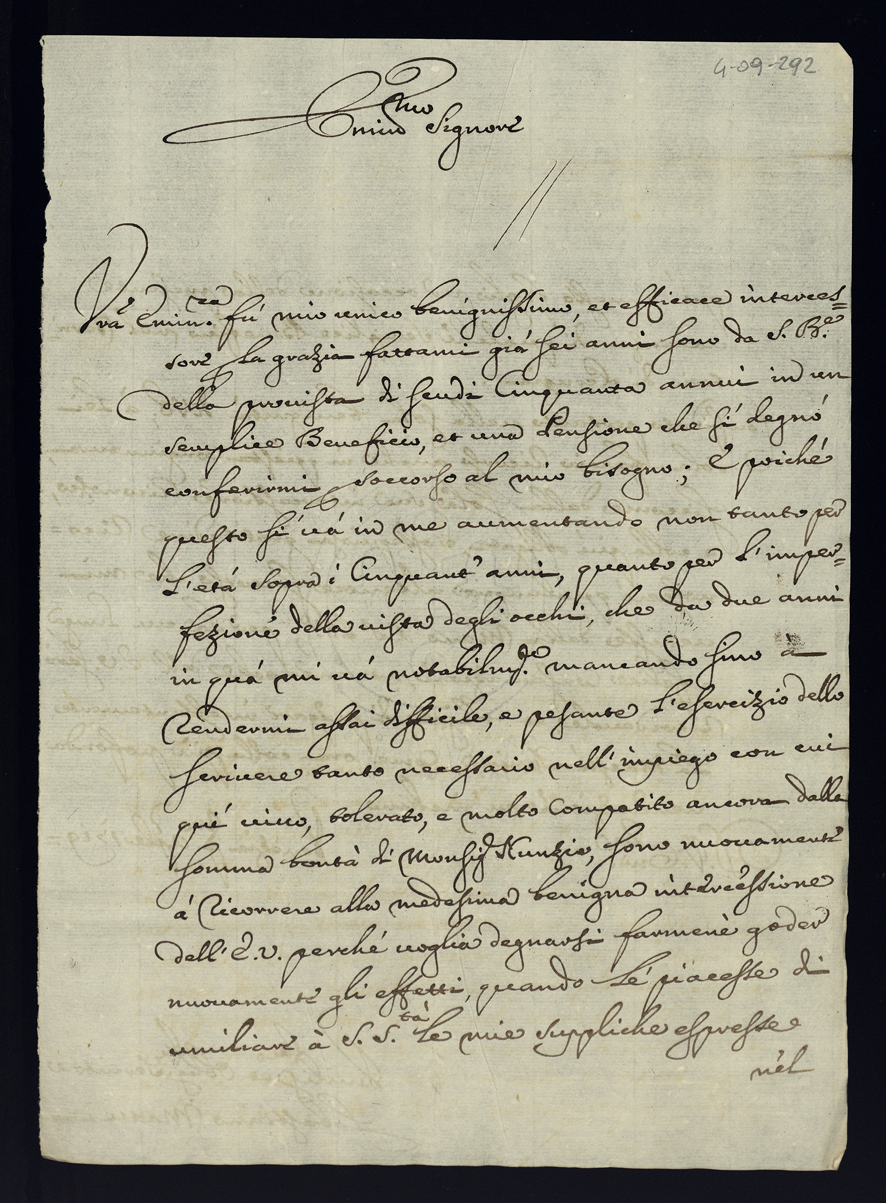 4-09-292
Emin.mo Signore
V.ra Emin.za fù mio unico benignissimo, et efficace interces=
sore p la grazia fattami già sei anni sono da S. B.e
della prouista di scudi Cinquanta annui in un
semplice Beneficio, et una Pensione che si degnò
conferirmi p soccorso al mio bisogno; E poiché
questo si uá in me aumentando non tanto per
l'etá sopra i Cinquant' anni, quanto per l'imper=
fezione della uista degli occhi, che da due anni
in quá mi uá notabilm.te mancando sino a
rendermi assai difficile, e pesante l'esercizio dello
scriuere tanto necessario nell' impiego con cui
quì uiuo, tolerato, e molto compatito ancora dalla
somma bontà di Monsig.r Nunzio, sono nuouamente
á ricorrere alla medesima benigna intercessione
dell' E.V. perché uoglia degnarsi farmene goder
nuouamente gli effetti, quando le piacesse di
umiliare à S. S.tà le mie suppliche espresse
nel